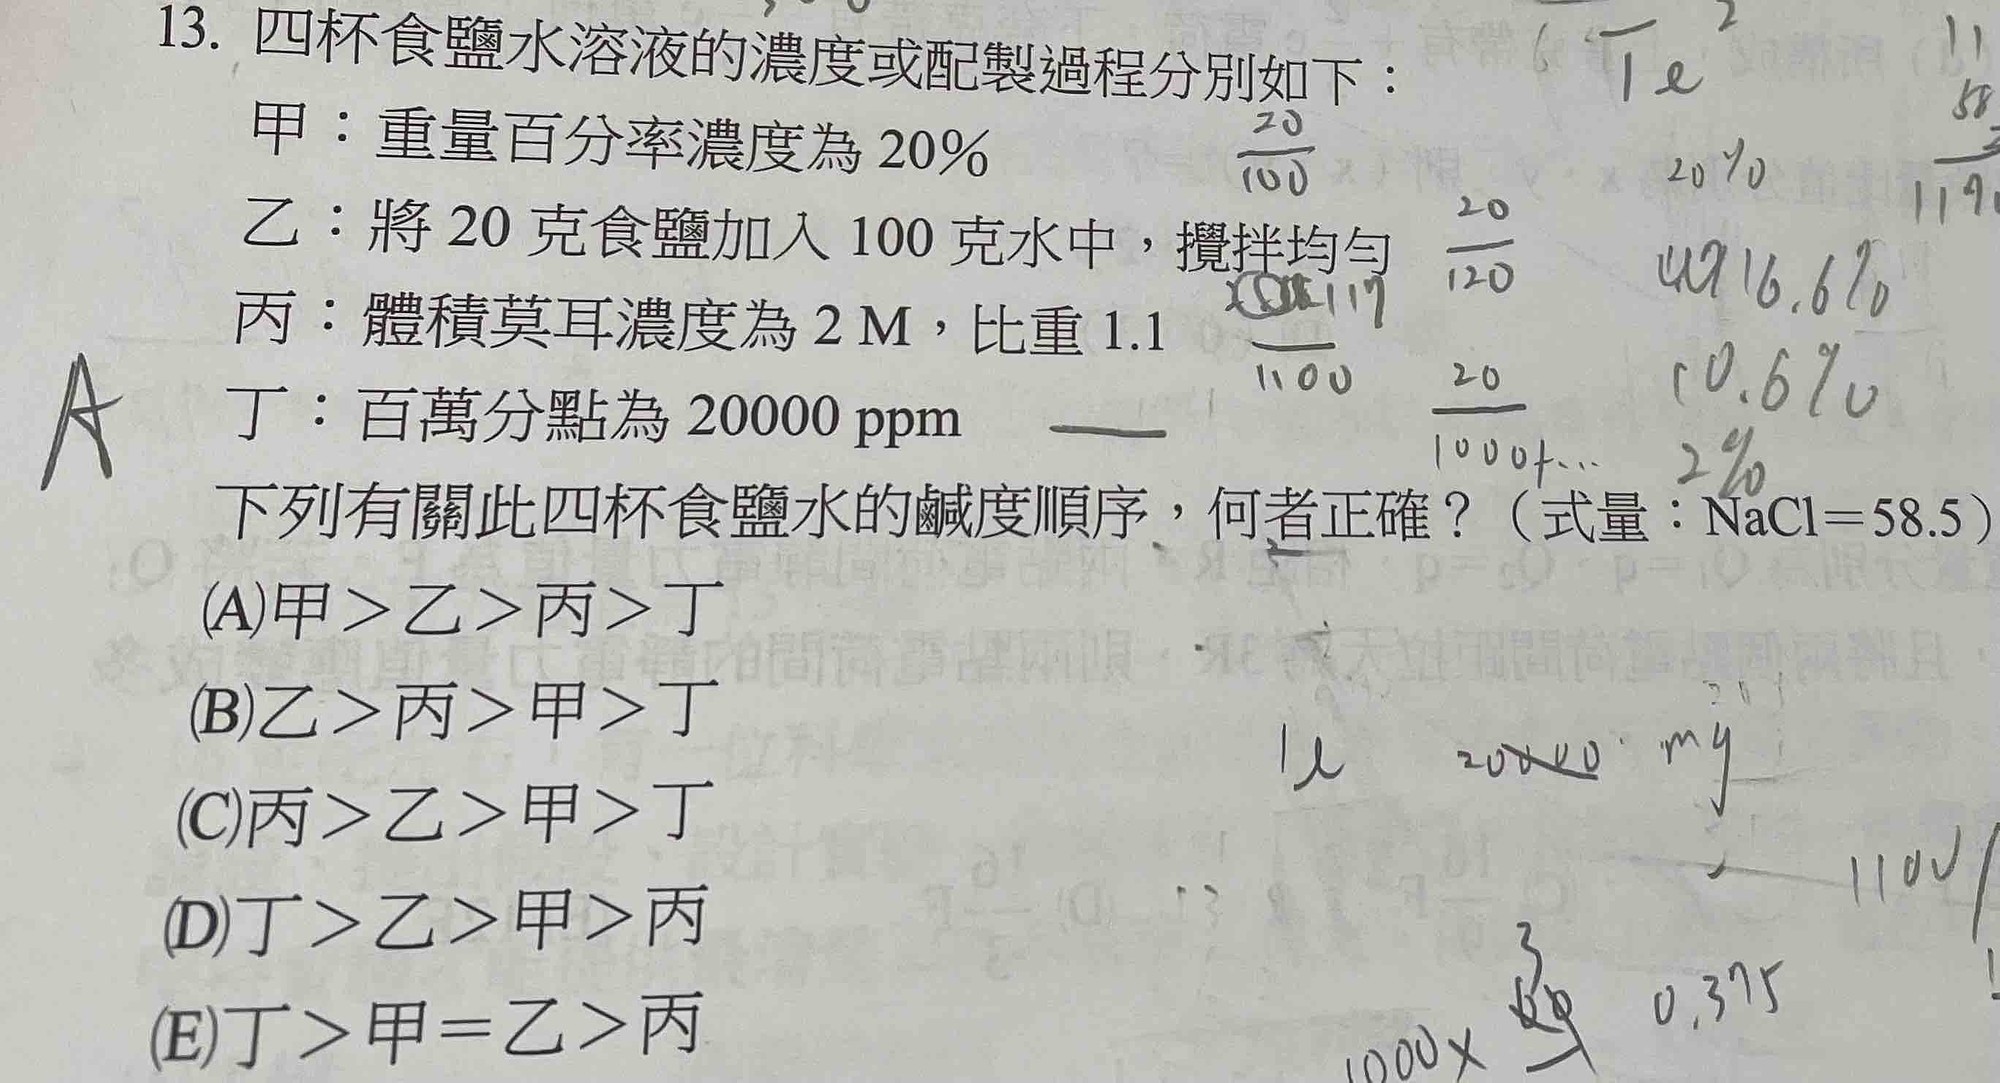 13. 四杯食鹽水溶液的濃度或配製過程分別如下：
Te 2
甲：重量百分率濃度為 20% 20/100 20%
乙：將 20 克食鹽加入 100 克水中，攪拌均勻 20/120 16.6%
丙：體積莫耳濃度為 2 M，比重 1.1 117/1100 10.6%
丁：百萬分點為 20000 ppm 20/1000+... 2%
A
下列有關此四杯食鹽水的鹹度順序，何者正確？（式量：NaCl＝58.5）
(A)甲＞乙＞丙＞丁
(B)乙＞丙＞甲＞丁
(C)丙＞乙＞甲＞丁
1l 20000 mg
(D)丁＞乙＞甲＞丙
1100
(E)丁＞甲＝乙＞丙
1000× 3 0.375